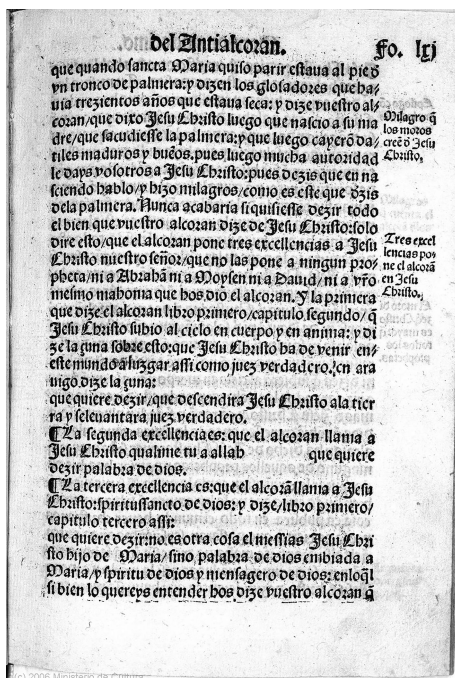 del Antialcoran.
Fo. lxj
que quando sancta Maria quiso parir estaua al pie đ
vn tronco de palmera: y dizen los glosadores que ha-
uia trezientos años que estaua seca: y dize vuestro al-
coran/que dixo Jesu Christo luego que nascio a su ma
dre/que sacudiesse la palmera: y que luego cayerõ da-
tiles maduros y buẽos. pues luego mucha autoridad
le days vosotros a Jesu Christo: pues dezis que en na
sciendo hablo/y hizo milagros/como es este que đzis
dela palmera. Nunca acabaria si quisiesse dezir todo
el bien que vuestro alcoran dize de Jesu Christo: solo
dire esto/que el alcoran pone tres excellencias a Jesu
Christo nuestro señor/que no las pone a ningun pro-
pheta/ni a Abrahã ni a Moysen ni a Dauid/ni a vr̃o
mesmo mahoma que hos dio el alcoran. Y la primera
que dize el alcoran libro primero/capitulo segundo/q̃
Jesu Christo subio al cielo en cuerpo y en anima: y di
ze la çuna sobre esto: que Jesu Christo ha de venir en-
este mundo a juzgar assi como juez verdadero. en ara
uigo. dize la çuna:
que quiere dezir/que descendira Jesu Christo ala tier
ra y se leuantara juez verdadero.
¶ La segunda excellencia es: que el alcoran llama a
Jesu Christo qualime tu a allah que quiere
dezir palabra de dios.
¶ La tercera excellencia es: que el alcorã llama a Jesu
Christo: spiritussancto de dios: y dize/libro primero/
capitulo tercero assi:
que quiere dezir: no es otra cosa el messias Jesu Chri
sto hijo de Maria/sino palabra de dios embiada a
Maria/y spiritu de dios y mensagero de dios: enloq̃l
si bien lo quereys entender hos dize vuestro alcoran q̃
Milagro q̃
los moros
creẽ đ Jesu
Christo.
Tres excel
lencias po-
ne el alcorã
en Jesu
Christo.
(c) 2006 Ministerio de Cultura